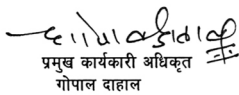 प्रमुख कार्यकारी अधिकृत
गोपाल दाहाल